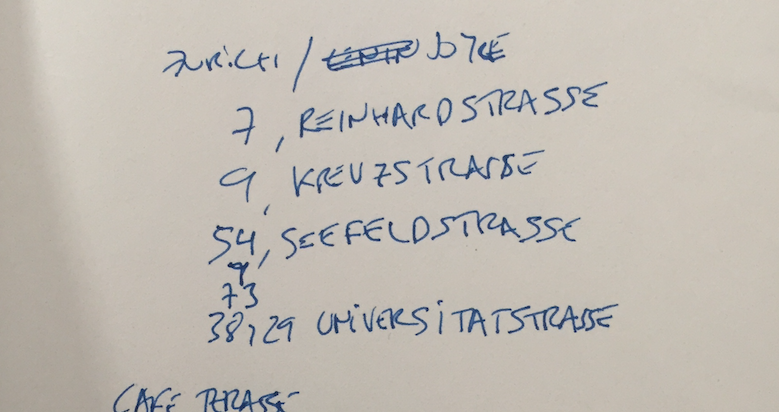 ZURICH / JOYCE
7, REINHARDSTRASSE
9, KREUZSTRASSE
54, SEEFELDSTRASSE
y
73
38, 29 UNIVERSITATSTRASSE
CAFE TERASSE